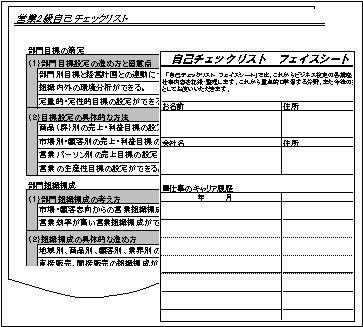 営業2級自己チェックリスト
部門目標の策定
(1)部門目標設定の進め方と留意点
部門別目標と経営計画との連動に
組織内外の環境分析ができる。
定量的・定性的目標の設定ができる
(2)目標設定の具体的な方法
商品(群)別の売上・利益目標の設定
市場別・顧客別の売上・利益目標の
営業パーソン別の売上目標の設定
営業の生産性目標の設定ができる。
部門組織構成
(1)部門組織構成の考え方
市場・顧客志向からの営業組織構成
営業効率が高い営業組織構成ができ
(2)組織構成の具体的な進め方
地域別、商品別、顧客別、業界別の
直接販売、間接販売の組織構成が
自己チェックリスト フェイスシート
「自己チェックリスト フェイスシート」では、これからビジネス
お名前
住所
会社名
住所
■仕事のキャリア履歴
年 月